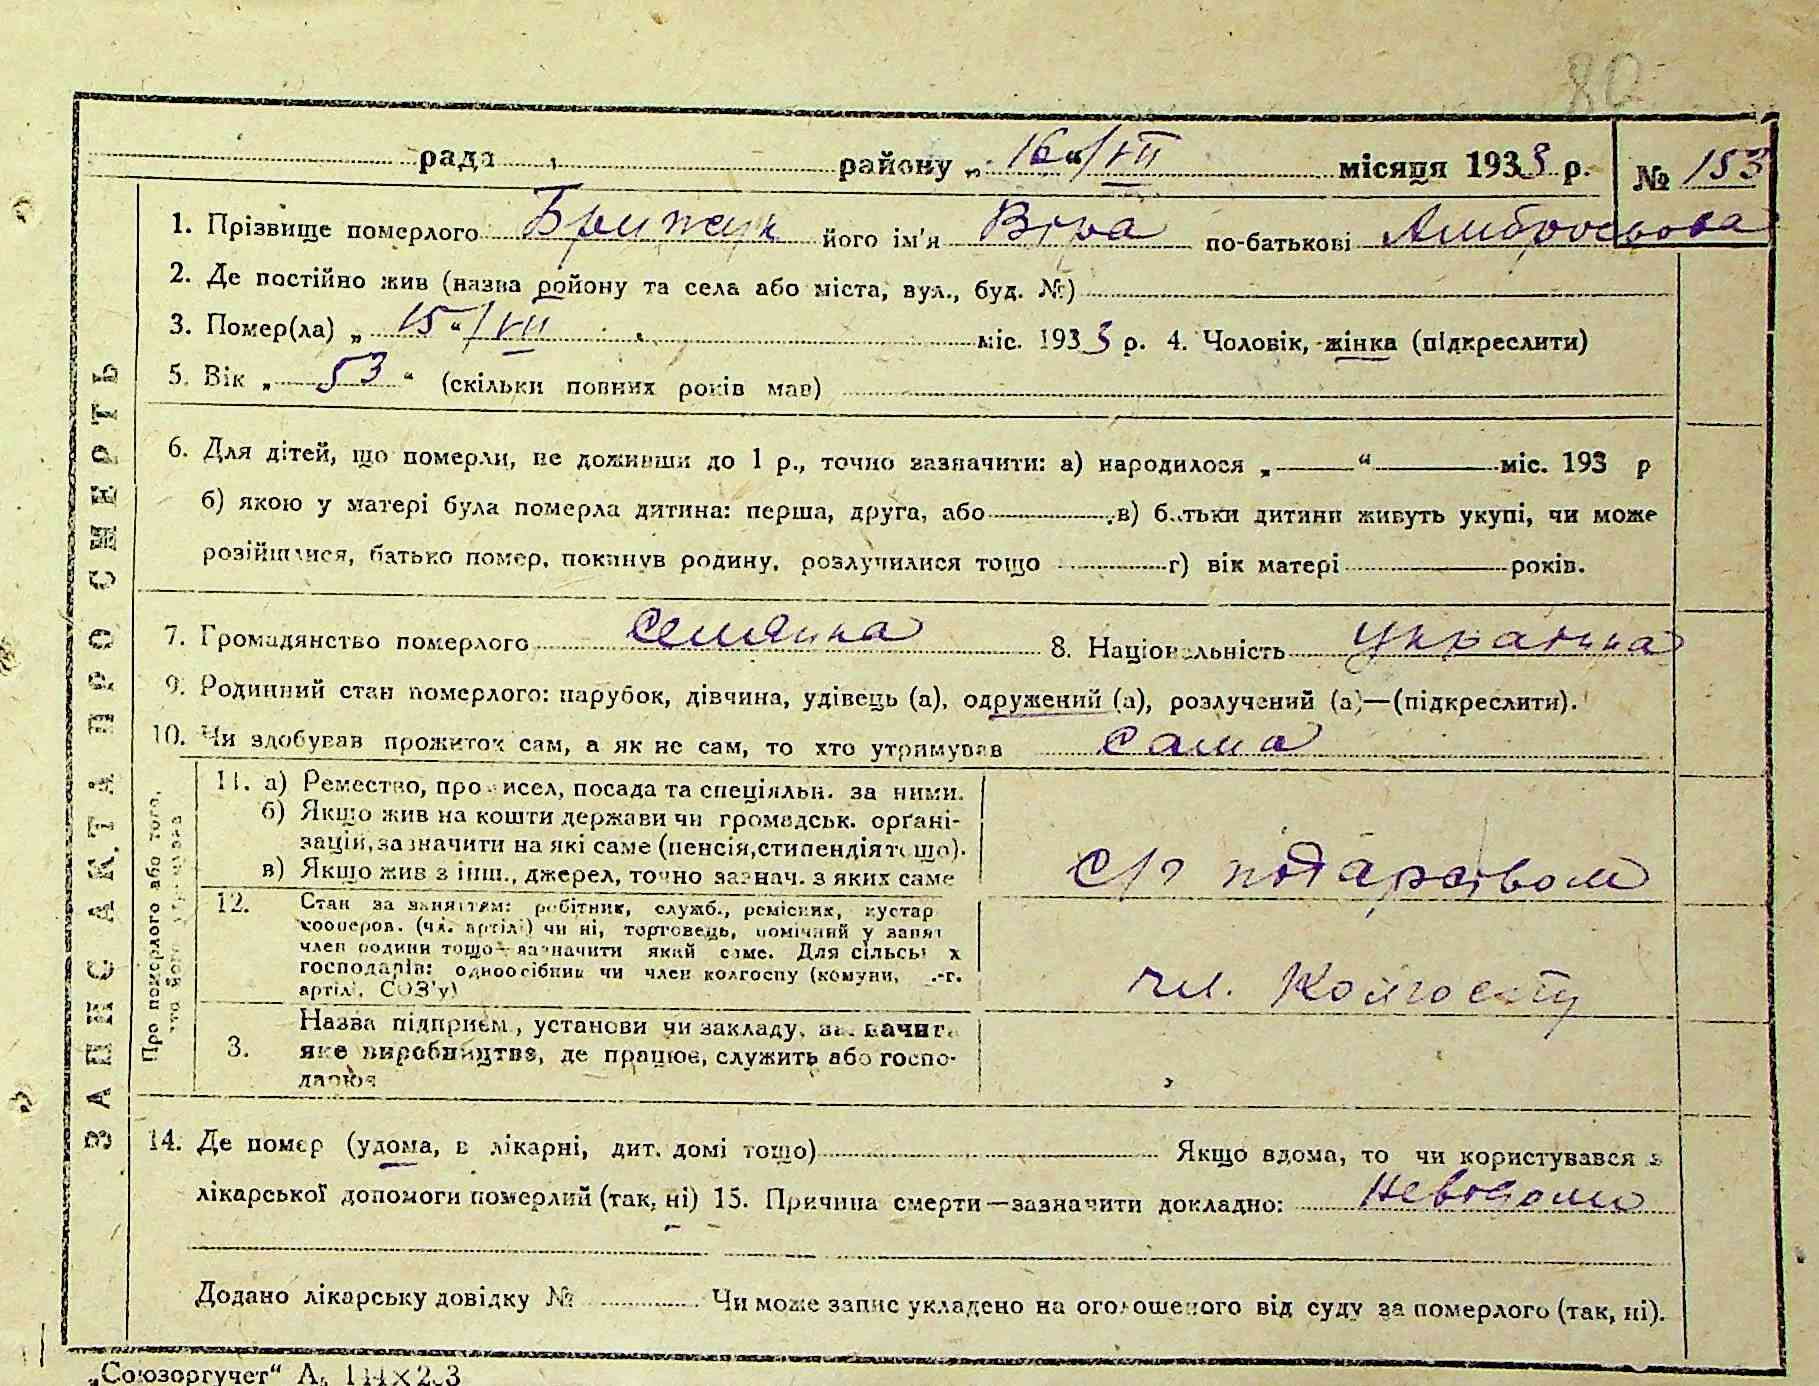 80
рада району „ 16 “ / VII місяця 1933 р. № 153
1. Прізвище померлого Брижук його ім'я Віра по-батькові Амбросьова
2. Де постійно жив (назва району та села або міста, вул., буд. №)
3. Помер(ла) „ 15 “ / VII міс. 1933 р. 4. Чоловік, жінка (підкреслити)
5. Вік „ 53 “ (скільки повних років мав)
6. Для дітей, що померли, не доживши до 1 р., точно зазначити: а) народилося „ “ міс. 193 р
б) якою у матері була померла дитина: перша, друга, або в) батьки дитини живуть укупі, чи може
розійшлися, батько помер, покинув родину, розлучилися тощо г) вік матері років.
7. Громадянство померлого селянка 8. Національність українка
9. Родинний стан померлого: парубок, дівчина, удівець (а), одружений (а), розлучений (а)—(підкреслити).
10. Чи здобував прожиток сам, а як не сам, то хто утримував сама
11. а) Ремество, промисел, посада та спеціяльн. за ними.
б) Якщо жив на кошти держави чи громадськ. органі-
зацій, зазначити на які саме (пенсія, стипендія тощо).
в) Якщо жив з інш., джерел, точно зазнач. з яких саме
с/г
12. Стан за заняттям: робітник, служб., ремісник, кустар
кооперов. (чл. артілі) чи ні, торговець, помічний у занят
член родини тощо—зазначити який саме. Для сільськ х
господарів: одноосібник чи член колгоспу (комуни, .-г.
артілі, СОЗ'у)
чл. Колгоспу
3. Назва підприєм., установи чи закладу, зазначити
яке виробництво, де працює, служить або госпо-
дарює
14. Де помер (удома, в лікарні, дит. домі тощо) Якщо вдома, то чи користувався з
лікарської допомоги померлий (так, ні) 15. Причина смерти—зазначити докладно: Невідомо
Додано лікарську довідку № Чи може запис укладено на оголошеного від суду за померлого (так, ні).
ЗАПИС АКТА ПРО СМЕРТЬ
Про померлого або того,
хто його утримував
„Союзоргучет“